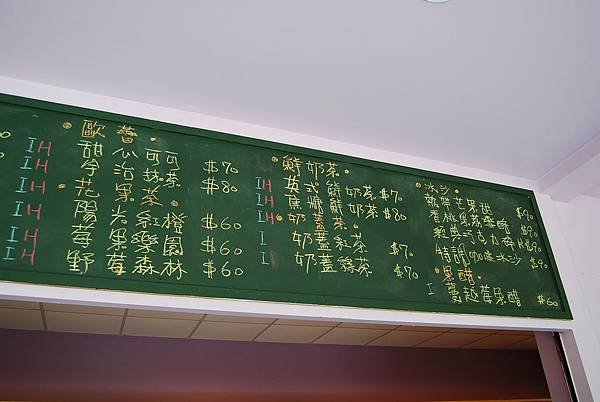 歐蕾
IH 甜心可可 $70
IH 今治抹茶 $80
花果茶
IH 陽光紅橙 $60
IH 莓果樂園 $60
IH 野莓森林 $60
鮮奶茶
IH 英式鮮奶茶 $70
IH 焦糖鮮奶茶 $80
奶蓋茶
I 奶蓋紅茶 $70
I 奶蓋綠茶 $70
冰沙
芒果 $90
$90
經典巧克力 $90
特調咖啡冰沙 $90
果醋
I 蔓越莓果醋 $60